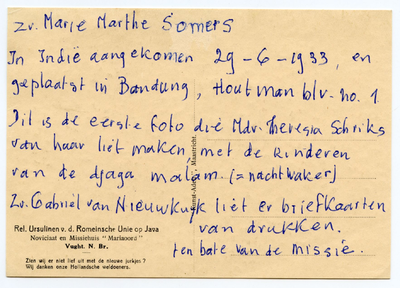 Zv. Marie Marthe Somers
In Indië aangekomen 29-6-1933, en
geplaatst in Bandung, Houtman blv. no. 1
Dit is de eerste foto die Mdr. Theresia Schriks
van haar liet maken, met de kinderen
van de djaga malam. (= nachtwaker)
Zv. Gabriel van Nieuwkuyk liet er briefkaarten
van drukken.
ten bate van de missie.
Rel. Ursulinen v. d. Romeinsche Unie op Java
Noviciaat en Missiehuis "Mariaoord"
Vught. N. Br.
Zien wij er niet lief uit met de nieuwe jurkjes?
Wij denken onze Hollandsche weldoeners.
Maastricht.